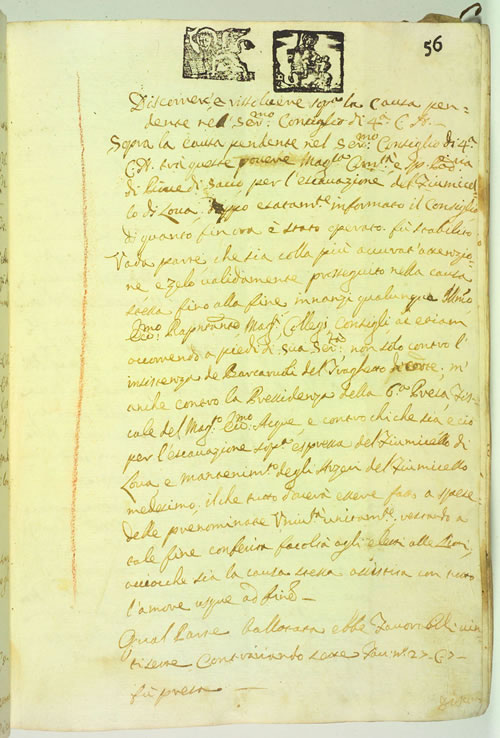 56
Discorrer, e rissolvere sopra la Causa pen-
dente nel Ser:mo Consiglio di 4:ta C. A.
Sopra la causa pendente nel Ser:mo Consiglio di 4:ta
C. A. trà queste povere Mag:ca e
di Piove di Sacco per l'escavazione del Fiumicel-
lo di Lova, doppo esatam:te informato il Consiglio
di quanto fin ora è stato operato fù stabilito
Vada parte che sia colla più accurat'attenzio-
ne e zelo validamente proseguito nella causa
stessa fino alla fine innanzi qualunque Illmo
Ecc:mo Mag:ti Collegi, Consigli ac etiam
occorrendo a piedi di sua Ser:tà non solo contro l'
insistenza de Barcaruoli del Traghetto di Corte, m'
anche contro la Pressidenza della 6:a Presa, Fis-
cale del Mag:to Ecc:mo Acque, e contro chi che sia, e ciò
per l'escavazione sop:ta espressa del Fiumicello di
Lova e mantenim:to degli Argeri del Fiumicello
medesimo, il che tutto doverà essere fatto a spese
delle prenominate unicam:te, restando a
tale fine conferita facoltà agli eletti alle Liti,
accioche sia la causa stessa assistita con tutto
l'amore usque ad finem
Qual Parte ballotata ebbe Favorevoli vin-
tisette Contrari
fù presa